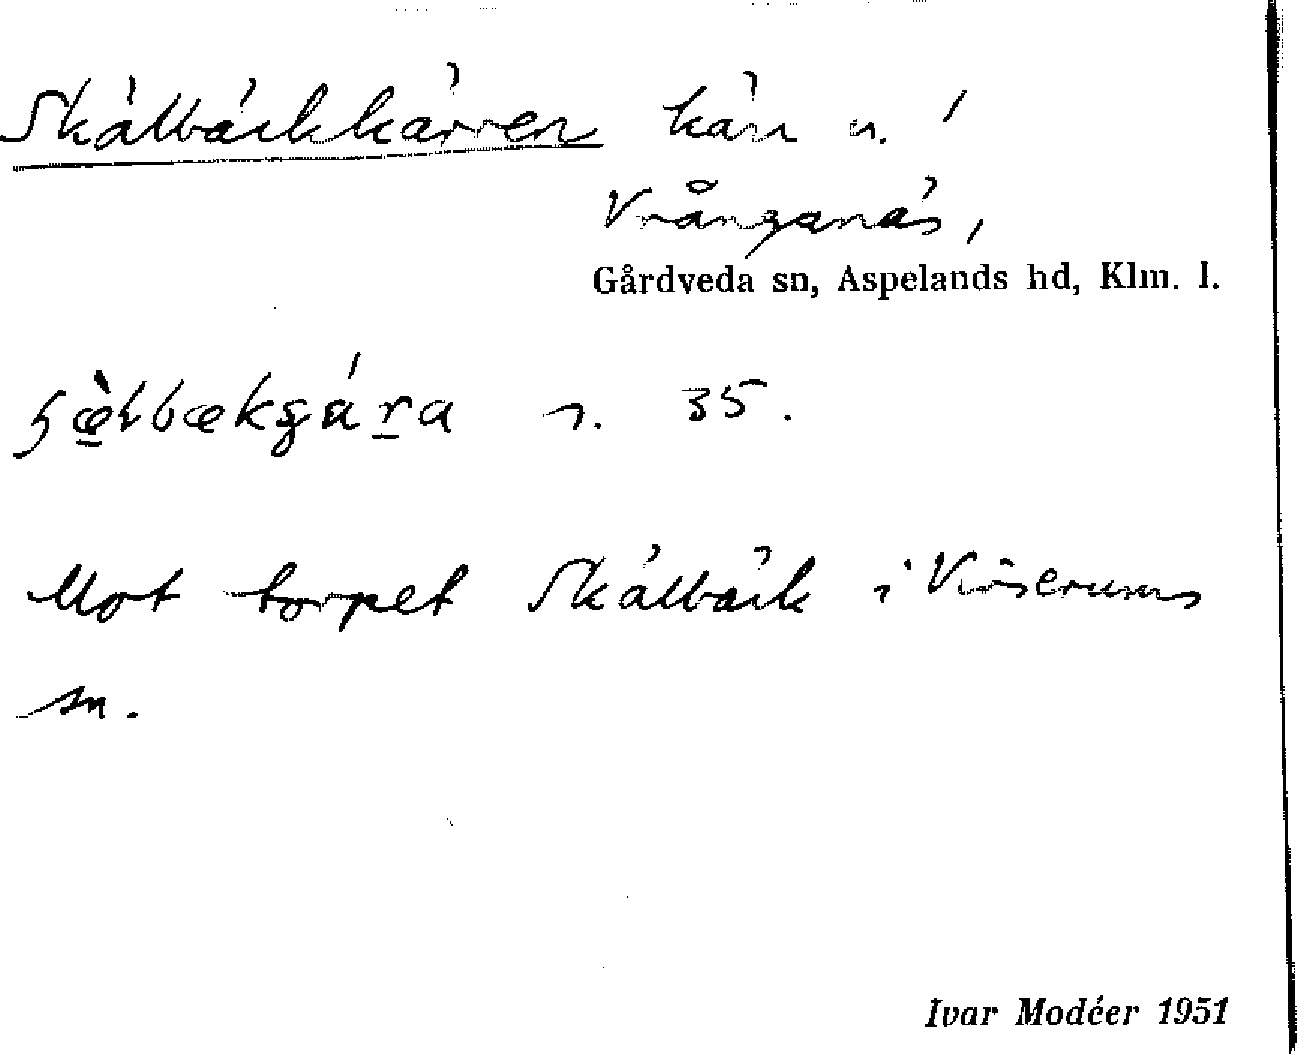 Skälbäckkärren kärr n. /
Vrånganäs,
Gårdveda sn, Aspelands hd, Klm. l.
35.
Mot torpet Skälbäck i Virserums
sn.
Ivar Modéer 1951